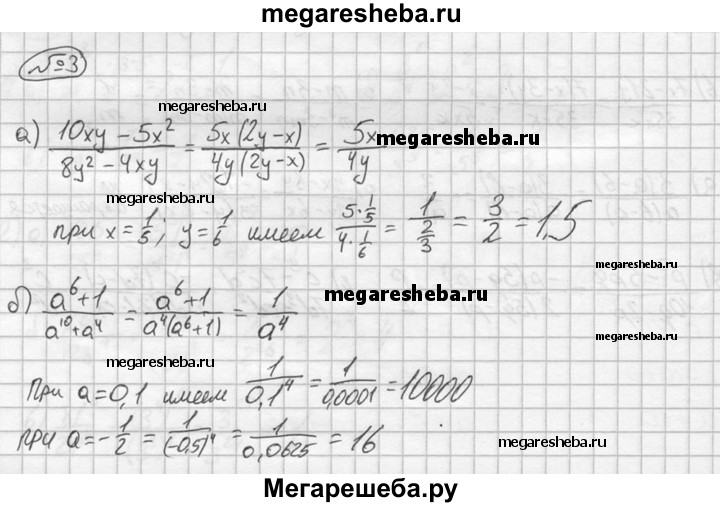 megaresheba.ru
№3
megaresheba.ru
а) (10xy − 5x²)/(8y² − 4xy) = 5x(2y−x)/4y(2y−x) = 5x/4y
megaresheba.ru
megaresheba.ru
при x=1/5; y=1/6 имеем (5·1/5)/(4·1/6) = 1/(2/3) = 3/2 = 1,5
б) (a⁶+1)/(a¹⁰+a⁴) = (a⁶+1)/(a⁴(a⁶+1)) = 1/a⁴
megaresheba.ru
megaresheba.ru
При a=0,1 имеем 1/0,1⁴ = 1/0,0001 = 10000
при a=−1/2 = 1/(−0,5)⁴ = 1/0,0625 = 16
megaresheba.ru
Мегарешеба.ру